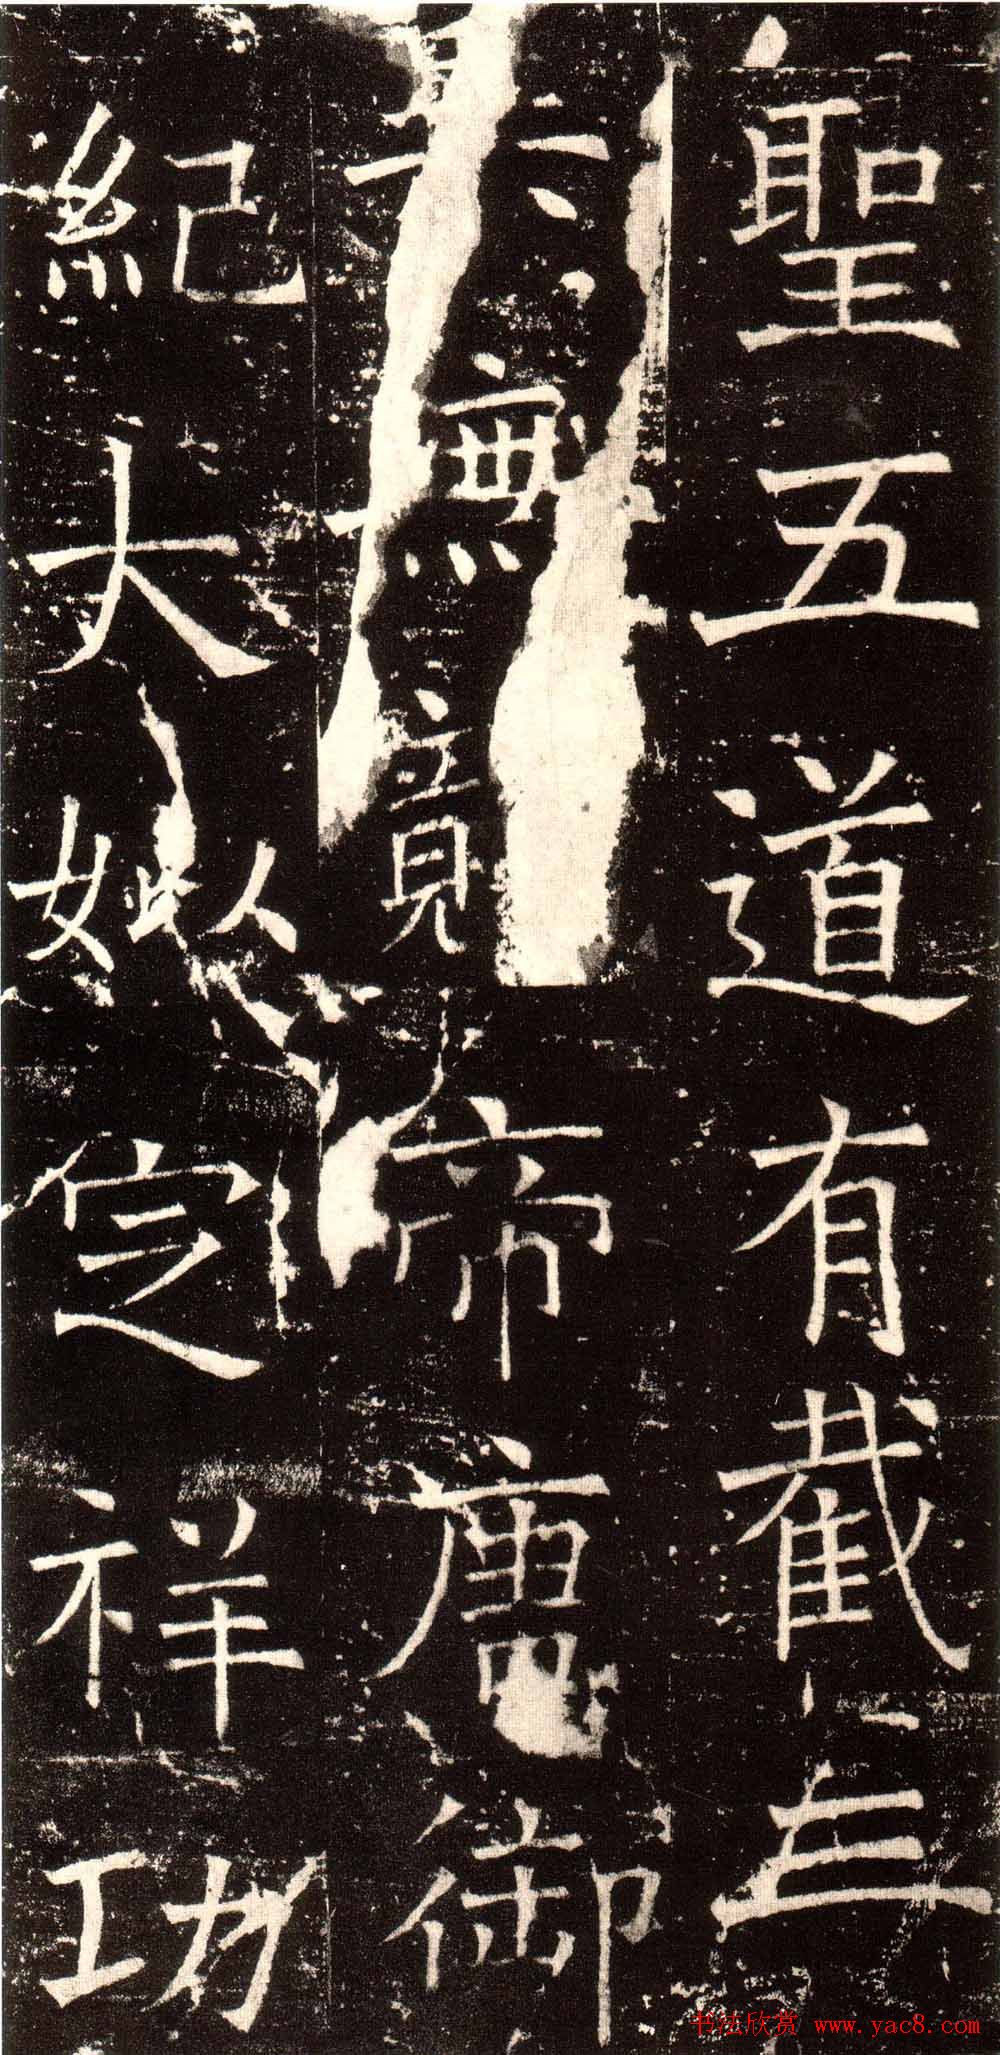 聖五道有截
無竟帝唐御
紀大姒定祥功
书法欣赏 www.yac8.com